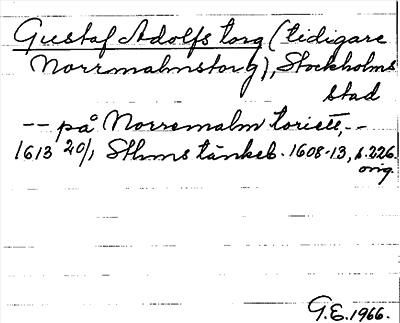 Gustaf Adolfs torg (tidigare
Norrmalmstorg), Stockholms
stad
-- på Norremalm toriett, --
1613 20/1 Sthms tänkeb. 1608-13, s. 226.
orig.
G.E. 1966.